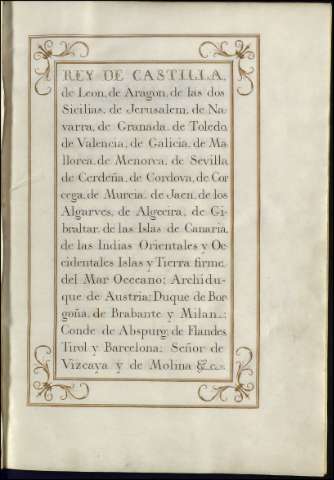 REY DE CASTILLA,
de Leon, de Aragon, de las dos
Sicilias, de Jerusalem, de Na-
varra, de Granada, de Toledo,
de Valencia, de Galicia, de Ma-
llorca, de Menorca, de Sevilla
de Cerdeña, de Cordova, de Cor-
cega, de Murcia, de Jaen, de los
Algarves, de Algecira, de Gi-
braltar, de las Islas de Canaria,
de las Indias Orientales y Oc-
cidentales Islas y Tierra firme,
del Mar Occeano; Archidu-
que de Austria; Duque de Bor-
goña, de Brabante y Milan;
Conde de Abspurg, de Flandes,
Tirol y Barcelona; Señor de
Vizcaya y de Molina &c.